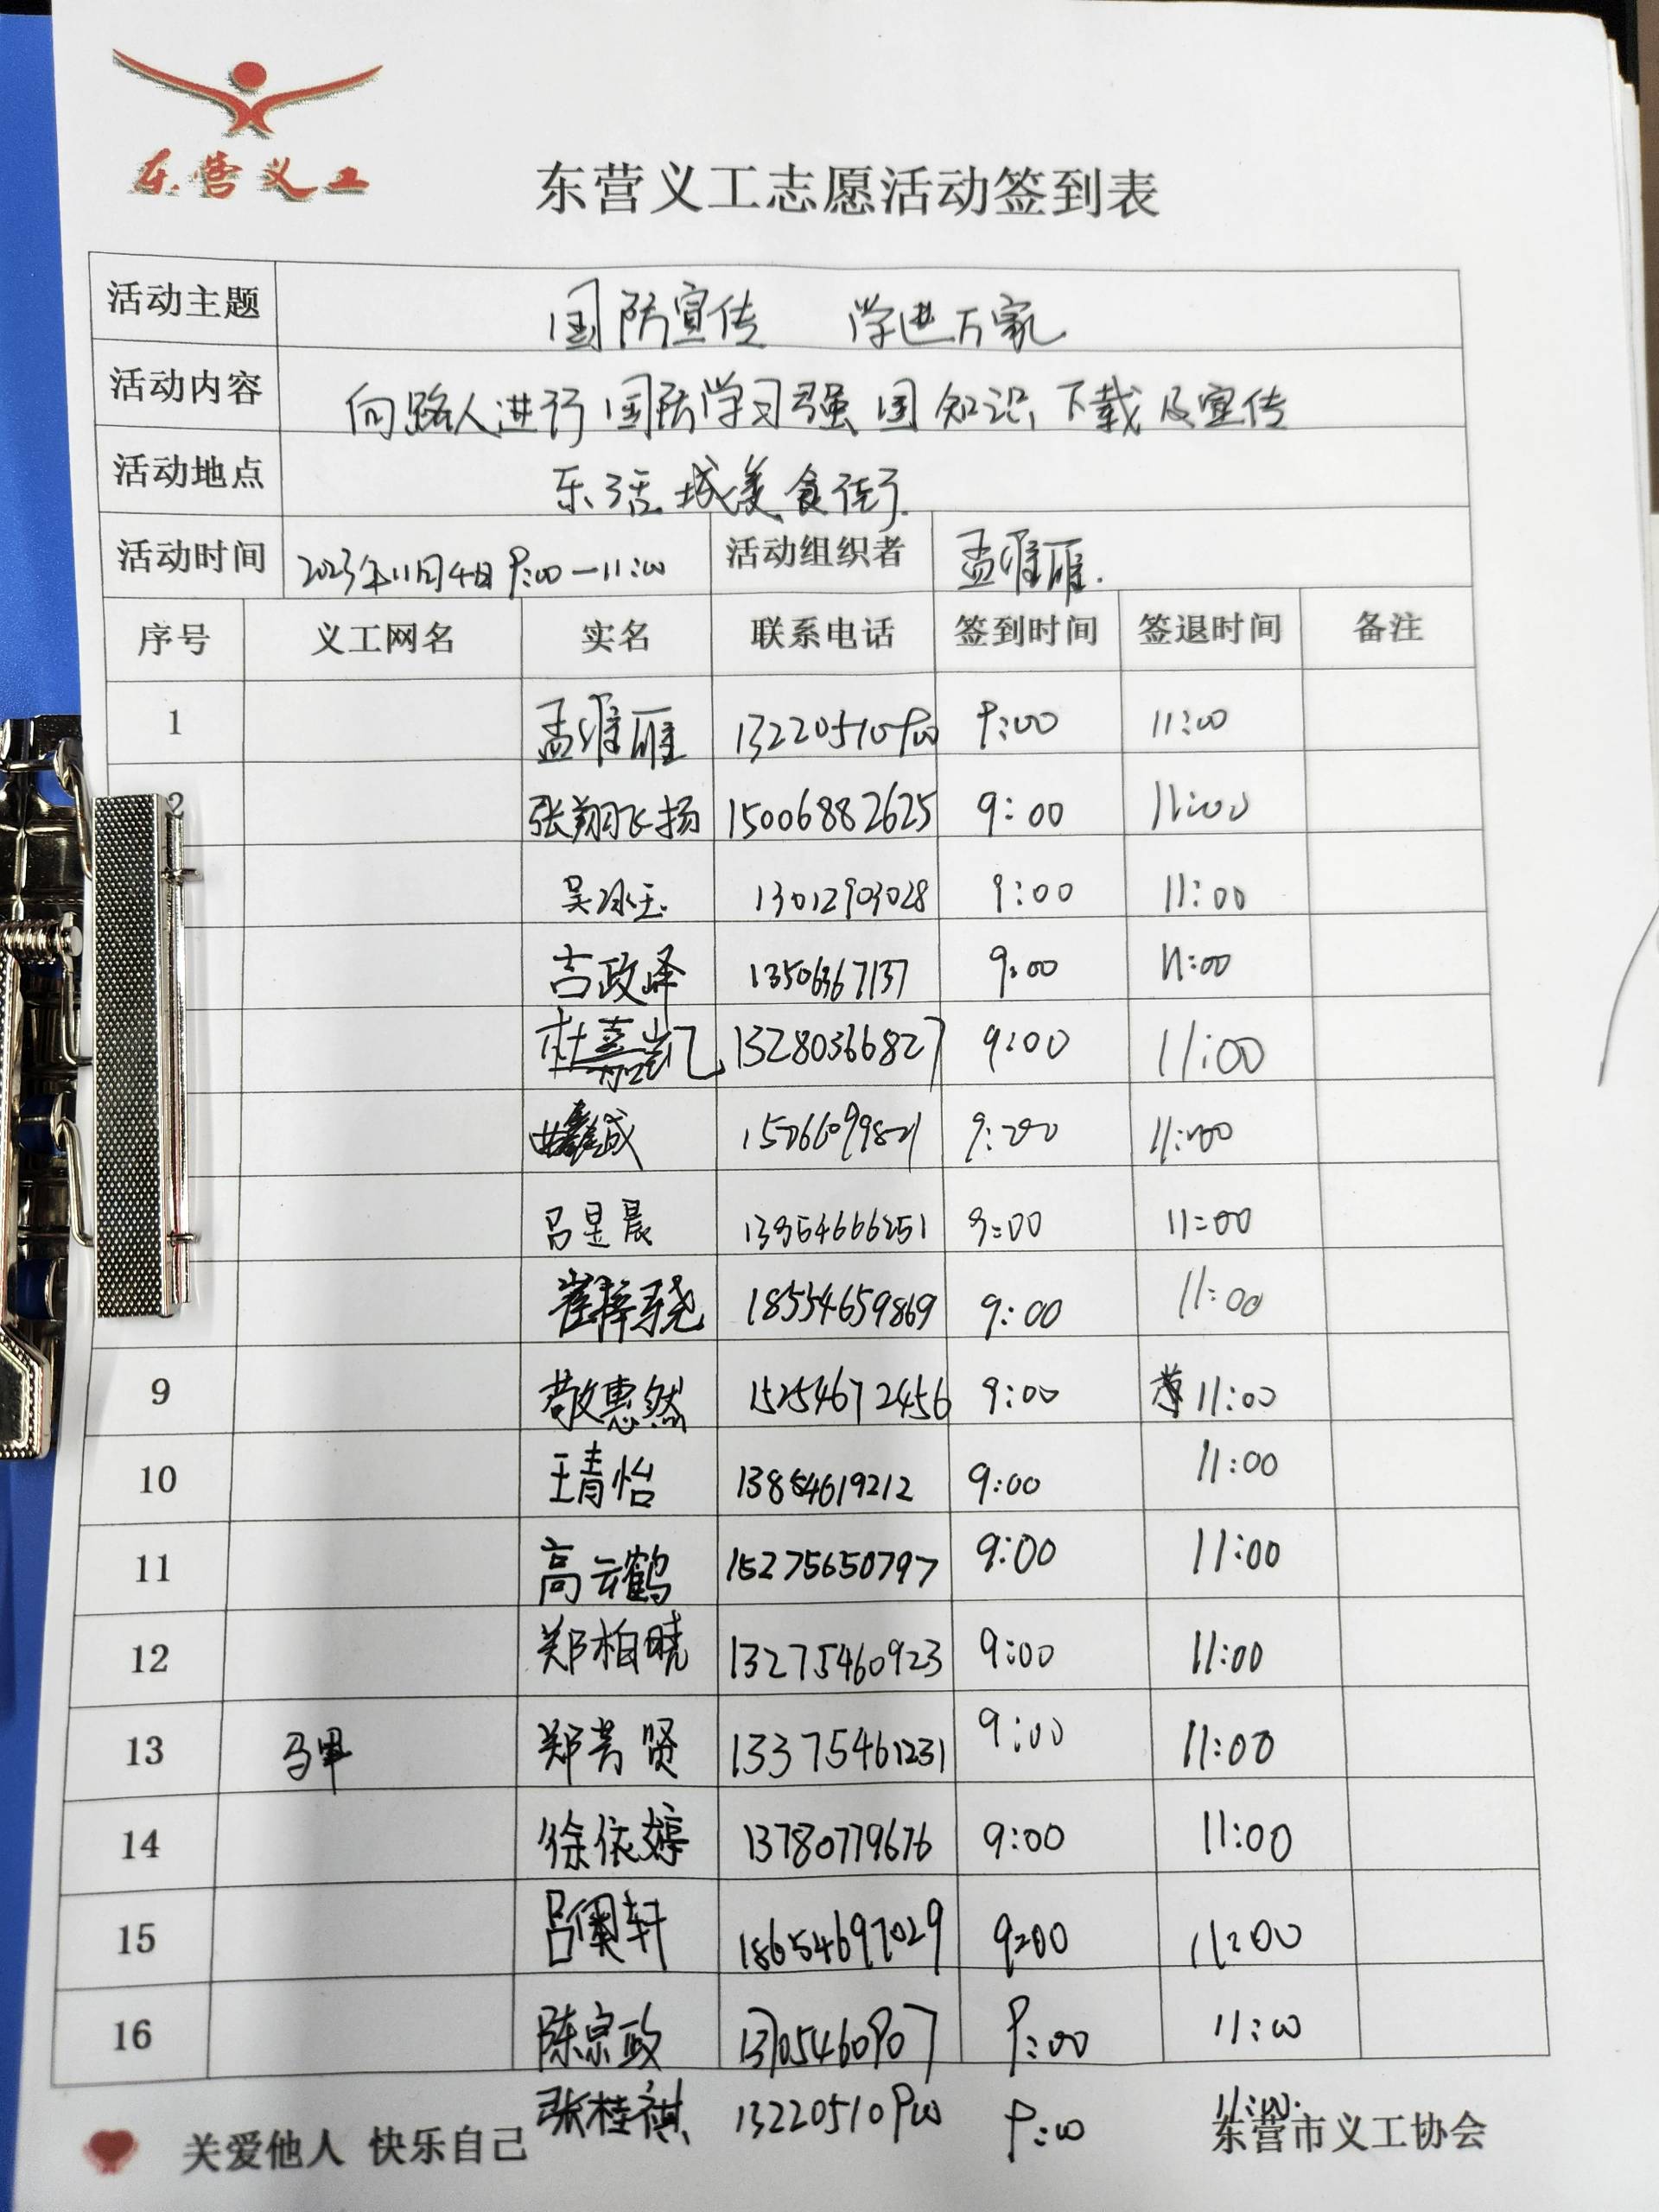 东营义工
东营义工志愿活动签到表
活动主题 国防宣传 学进万家
活动内容 向路人进行国防学习强国知识下载及宣传
活动地点 东活城美食街
活动时间 2023年11月4日 9:00—11:00 活动组织者 孟维雁
序号 义工网名 实名 联系电话 签到时间 签退时间 备注
1 孟维雁 13220510900 9:00 11:00
2 张翔飞扬 15006882625 9:00 11:00
吴冰玉 13012903028 9:00 11:00
吉政泽 9:00 11:00
杜嘉凯 13280366827 9:00 11:00
9:00 11:00
吕昱晨 13954666251 9:00 11:00
崔梓骁 18554659869 9:00 11:00
9 敬惠然 15254672456 9:00 11:00
10 王青怡 13854619212 9:00 11:00
11 高云鹤 15275650797 9:00 11:00
12 郑柏晓 13275460923 9:00 11:00
13 马甲 郑芳贤 13375461231 9:00 11:00
14 徐依婷 13780779676 9:00 11:00
15 吕 轩 18654697029 9:00 11:00
16 陈宗政 13705460907 9:00 11:00
张桂祺 13220510900 9:00 11:00
关爱他人 快乐自己 东营市义工协会